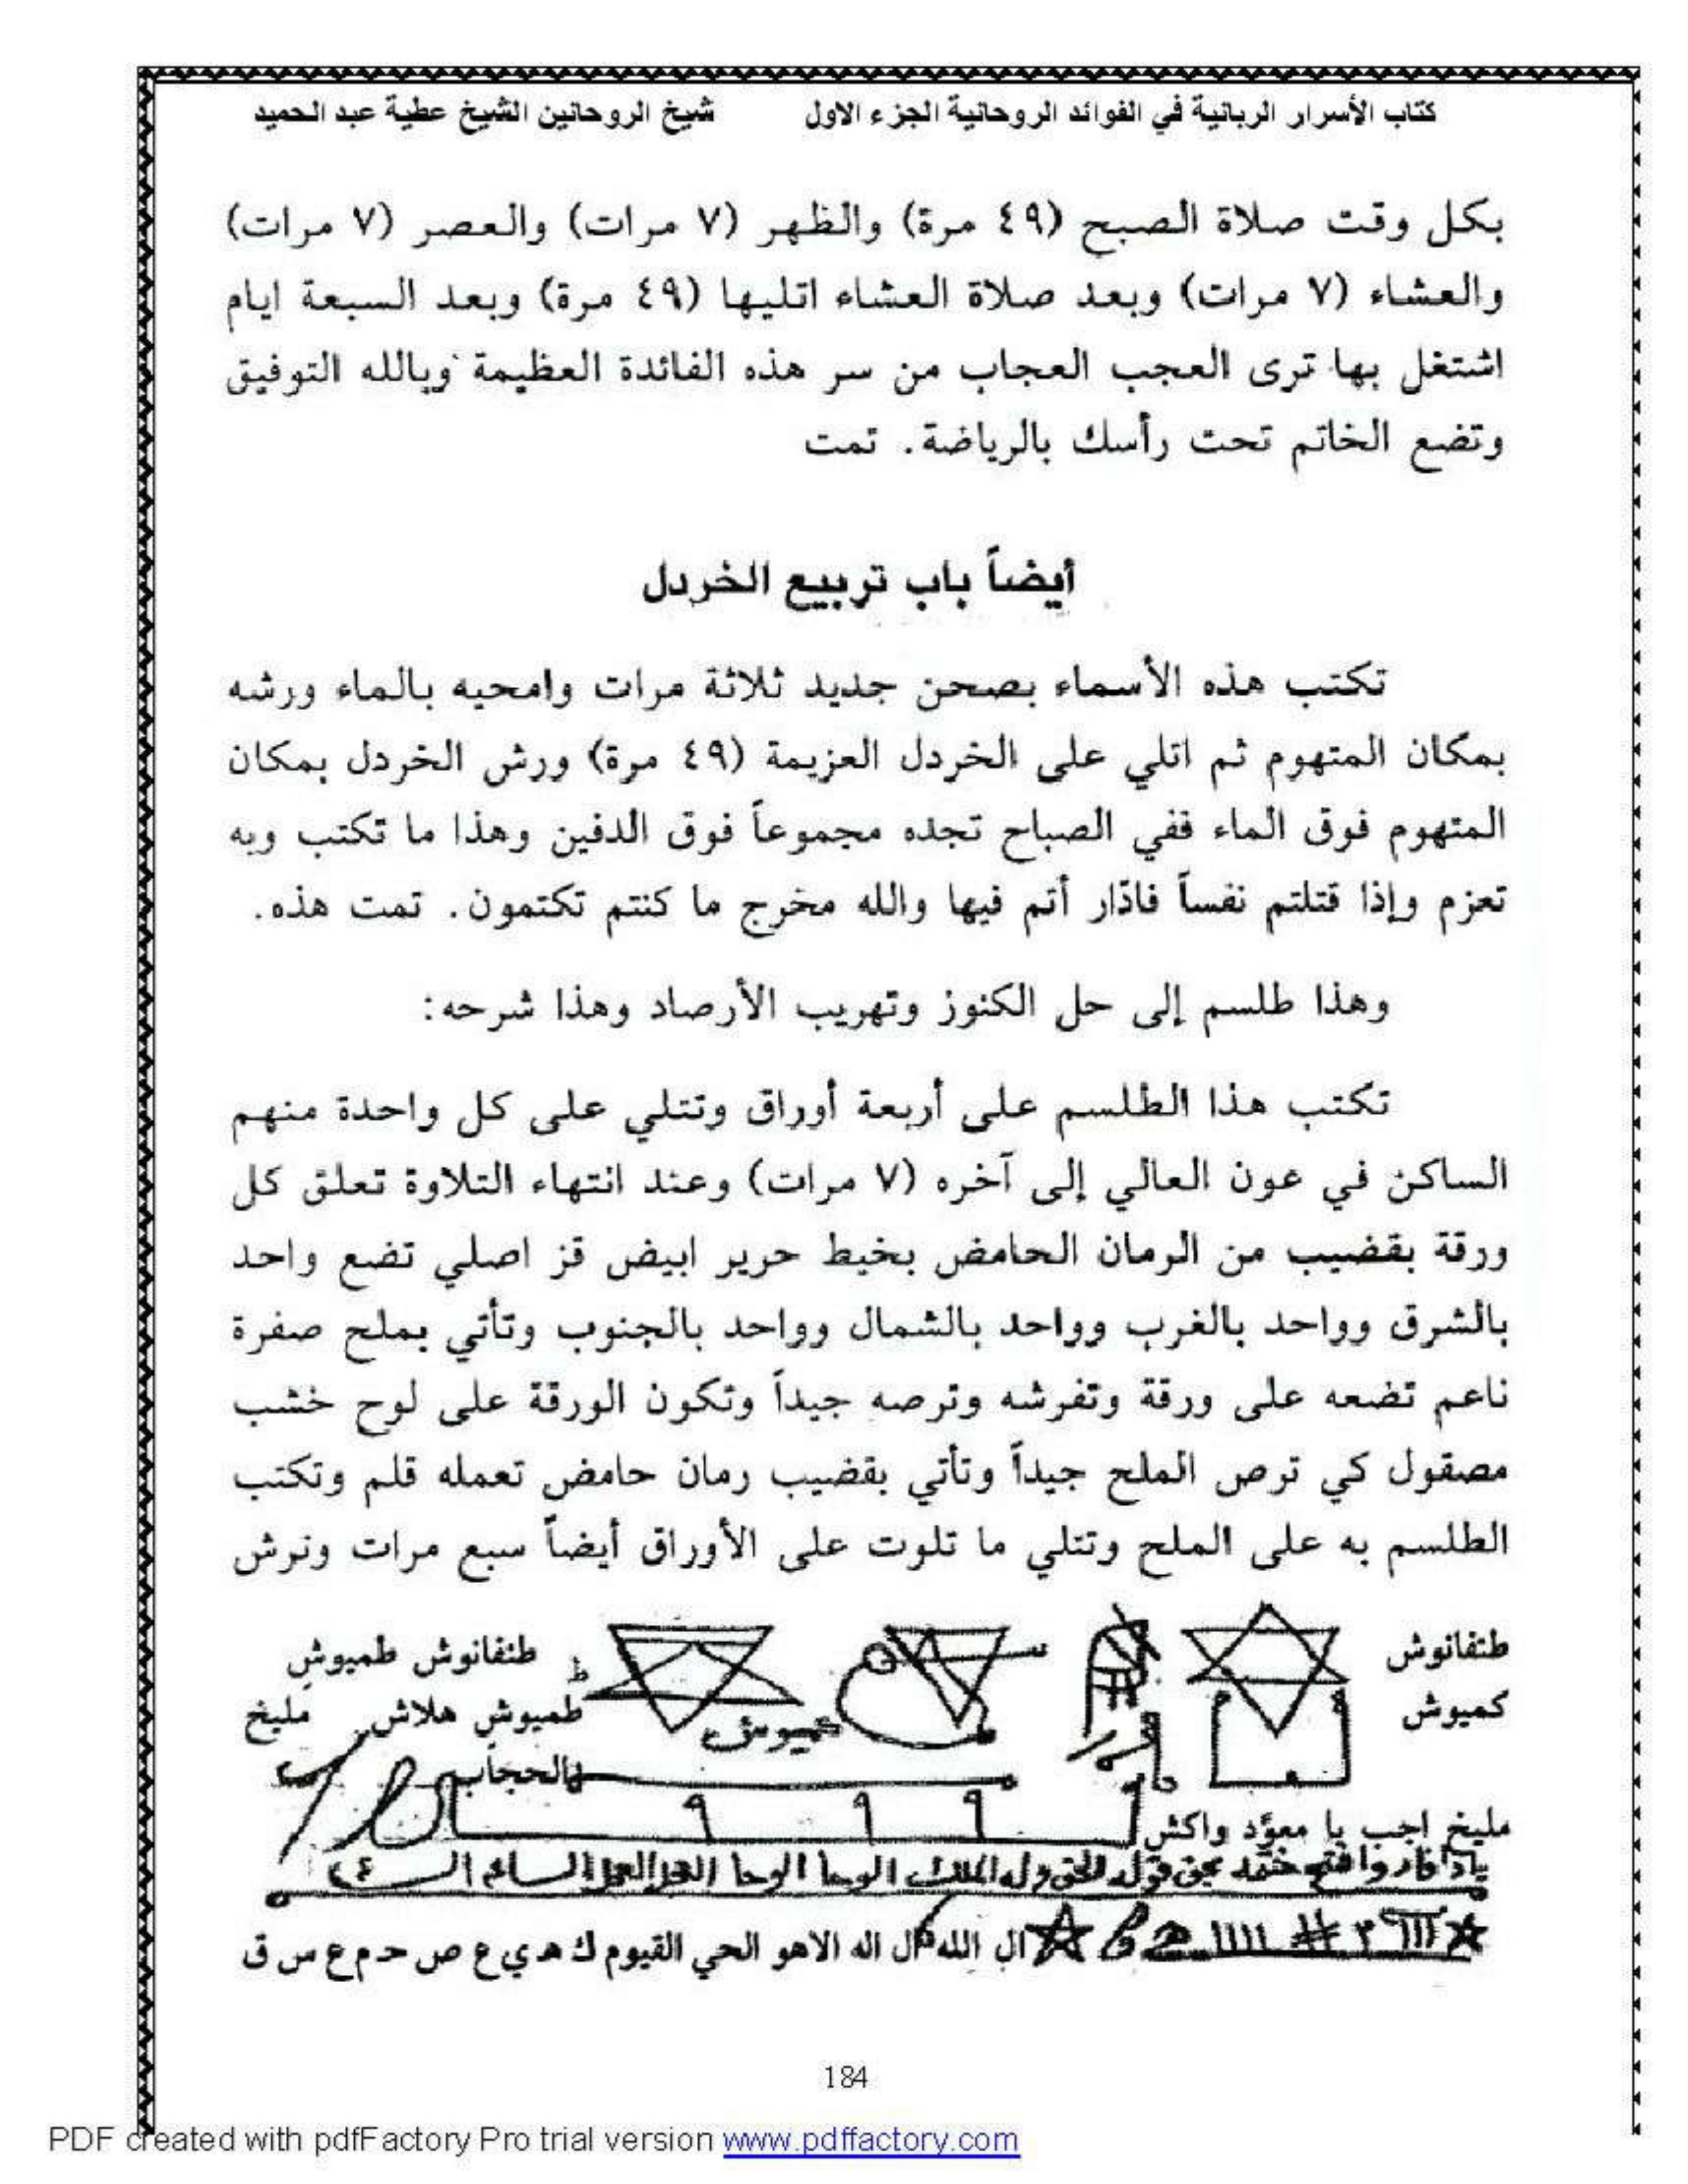 كتاب الأسرار الربانية في الفوائد الروحانية الجزء الاول شيخ الروحانين الشيخ عطية عبد الحميد
بكل وقت صلاة الصبح (٤٩ مرة) والظهر (٧ مرات) والعصر (٧ مرات)
والعشاء (٧ مرات) وبعد صلاة العشاء اتليها (٤٩ مرة) وبعد السبعة ايام
اشتغل بها ترى العجب العجاب من سر هذه الفائدة العظيمة وبالله التوفيق
وتضع الخاتم تحت رأسك بالرياضة. تمت
أيضاً باب تربيع الخردل
تكتب هذه الأسماء بصحن جديد ثلاثة مرات وامحيه بالماء ورشه
بمكان المتهوم ثم اتلي على الخردل العزيمة (٤٩ مرة) ورش الخردل بمكان
المتهوم فوق الماء ففي الصباح تجده مجموعاً فوق الدفين وهذا ما تكتب وبه
تعزم وإذا قتلتم نفساً فادّار أتم فيها والله مخرج ما كنتم تكتمون. تمت هذه.
وهذا طلسم إلى حل الكنوز وتهريب الأرصاد وهذا شرحه:
تكتب هذا الطلسم على أربعة أوراق وتتلي على كل واحدة منهم
الساكن في عون العالي إلى آخره (٧ مرات) وعند انتهاء التلاوة تعلق كل
ورقة بقضيب من الرمان الحامض بخيط حرير ابيض قز اصلي تضع واحد
بالشرق وواحد بالغرب وواحد بالشمال وواحد بالجنوب وتأتي بملح صفرة
ناعم تضعه على ورقة وتفرشه وترصه جيداً وتكون الورقة على لوح خشب
مصقول كي ترص الملح جيداً وتأتي بقضيب رمان حامض تعمله قلم وتكتب
الطلسم به على الملح وتتلي ما تلوت على الأوراق أيضاً سبع مرات ونرش
طنفانوش طنفانوش طميوش
كميوش طميوش هلاش مليخ
بالحجاب
مليخ اجب يا معوّد واكش
بحق قوله الحق وله الملك الوحا الوحا العجل العجل الساعة
ال الله ال اله الاهو الحي القيوم ك ه ي ع ص ح م ع س ق
184
PDF created with pdfFactory Pro trial version www.pdffactory.com